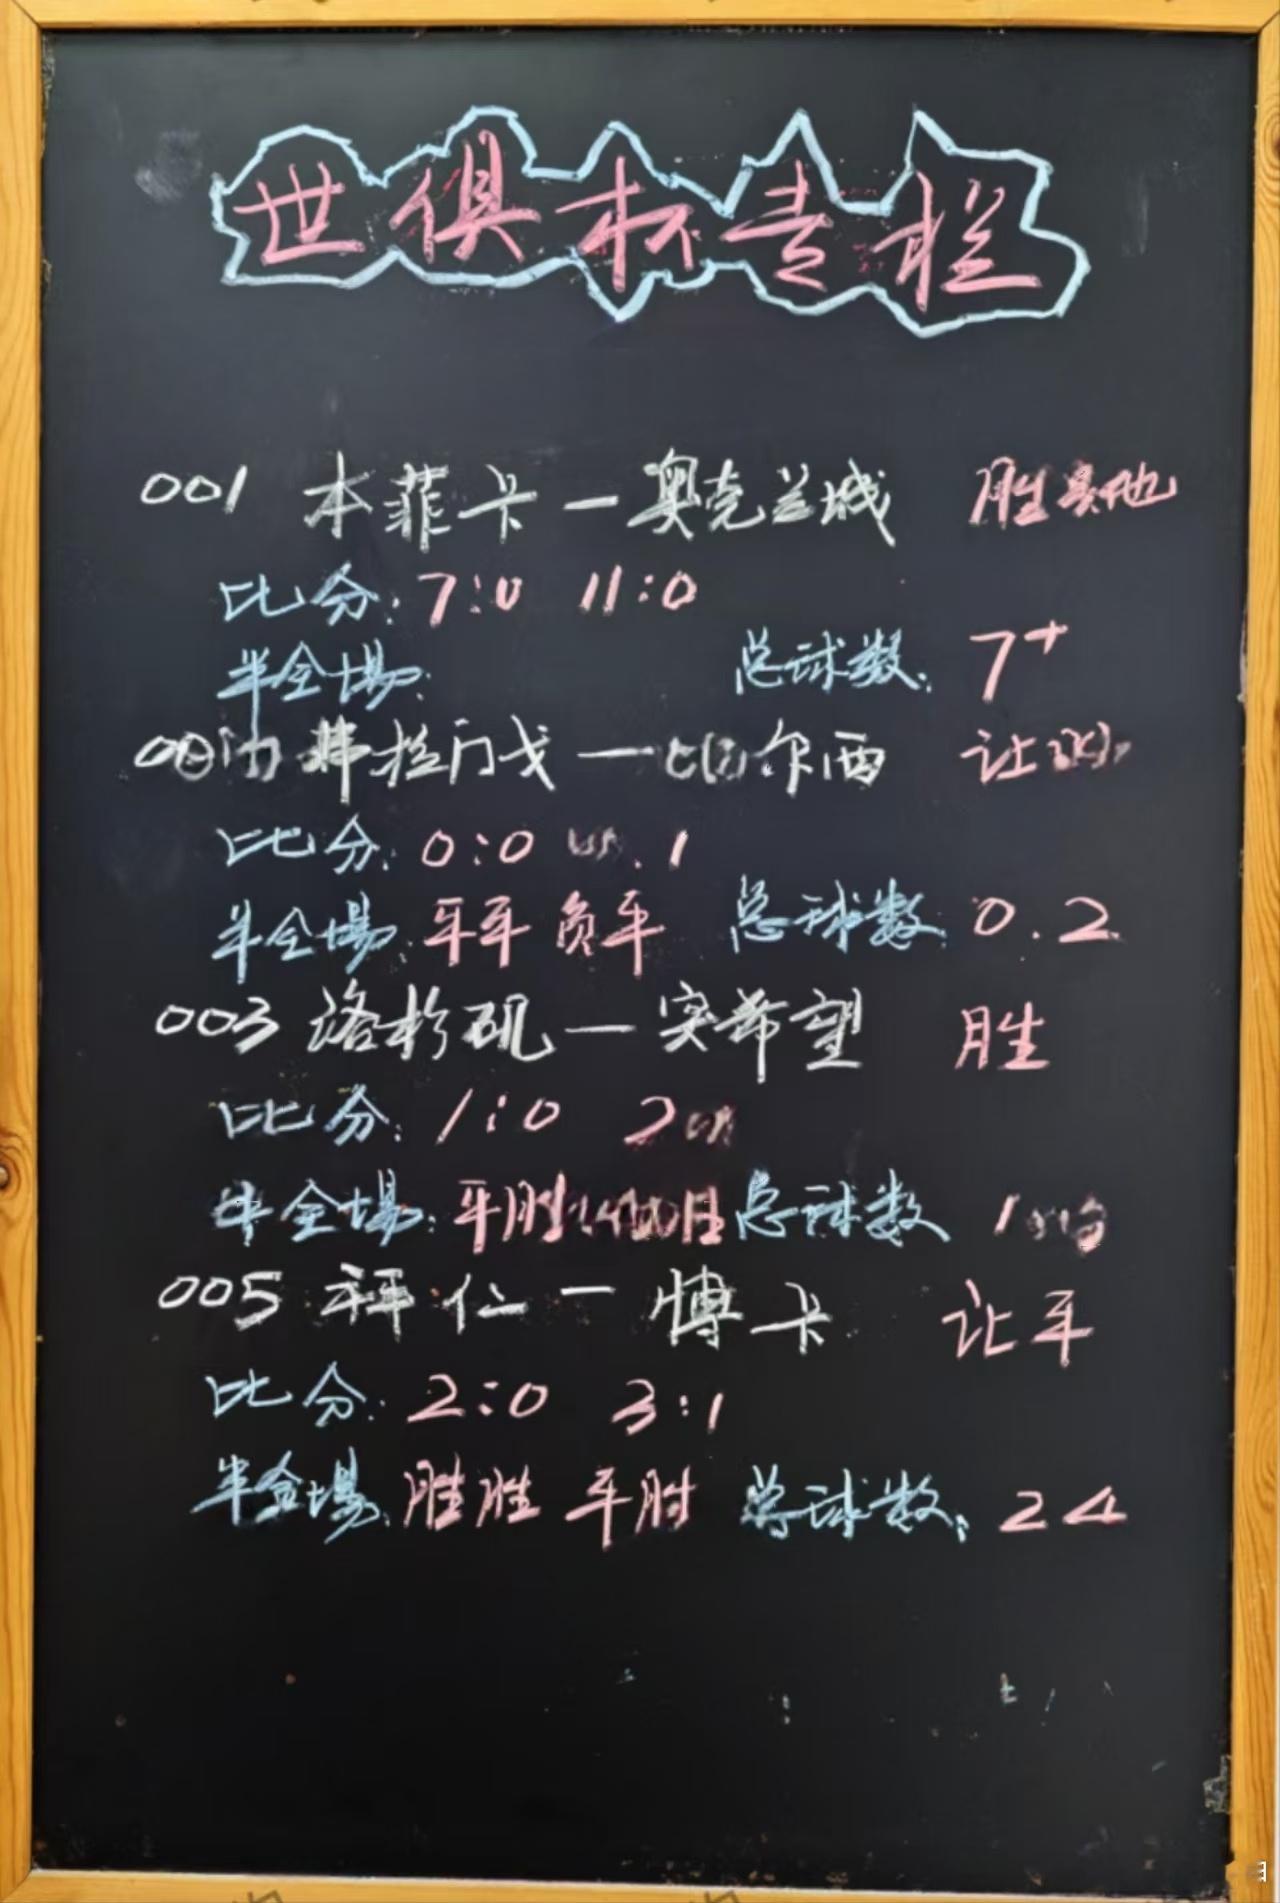 世俱杯专栏
001 本菲卡一奥克兰城 胜其他
比分: 7:0 11:0
半全場: 总球数: 7+
弗拉门戈 一 尔西 让
比分: 0:0 1
半全場: 平平 负平 总球数 0.2
003 洛杉矶一突希望 胜
比分: 1:0 2
半全場: 平胜 总球数 1
005 拜仁一博卡 让平
比分: 2:0 3:1
半全場: 胜胜 平胜 总球数: 2 4